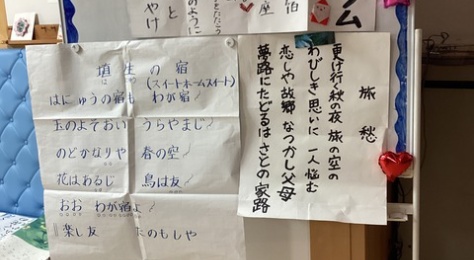 埴生の宿
はにゅう
(スイートホームスイート)
はにゅうの宿も わが宿
玉のよそおい うらやまじ
のどかなりや 春の空
花はあるじ 鳥は友
おお わが宿よ
楽し友 たのもしや
旅愁
更け行く秋の夜 旅の空の
わびしき思いに 一人悩む
恋しや故郷 なつかし父母
夢路にたどるは さとの家路